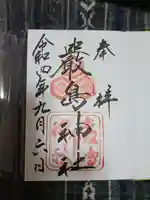 奉拝
嚴島神社
令和四年九月六日